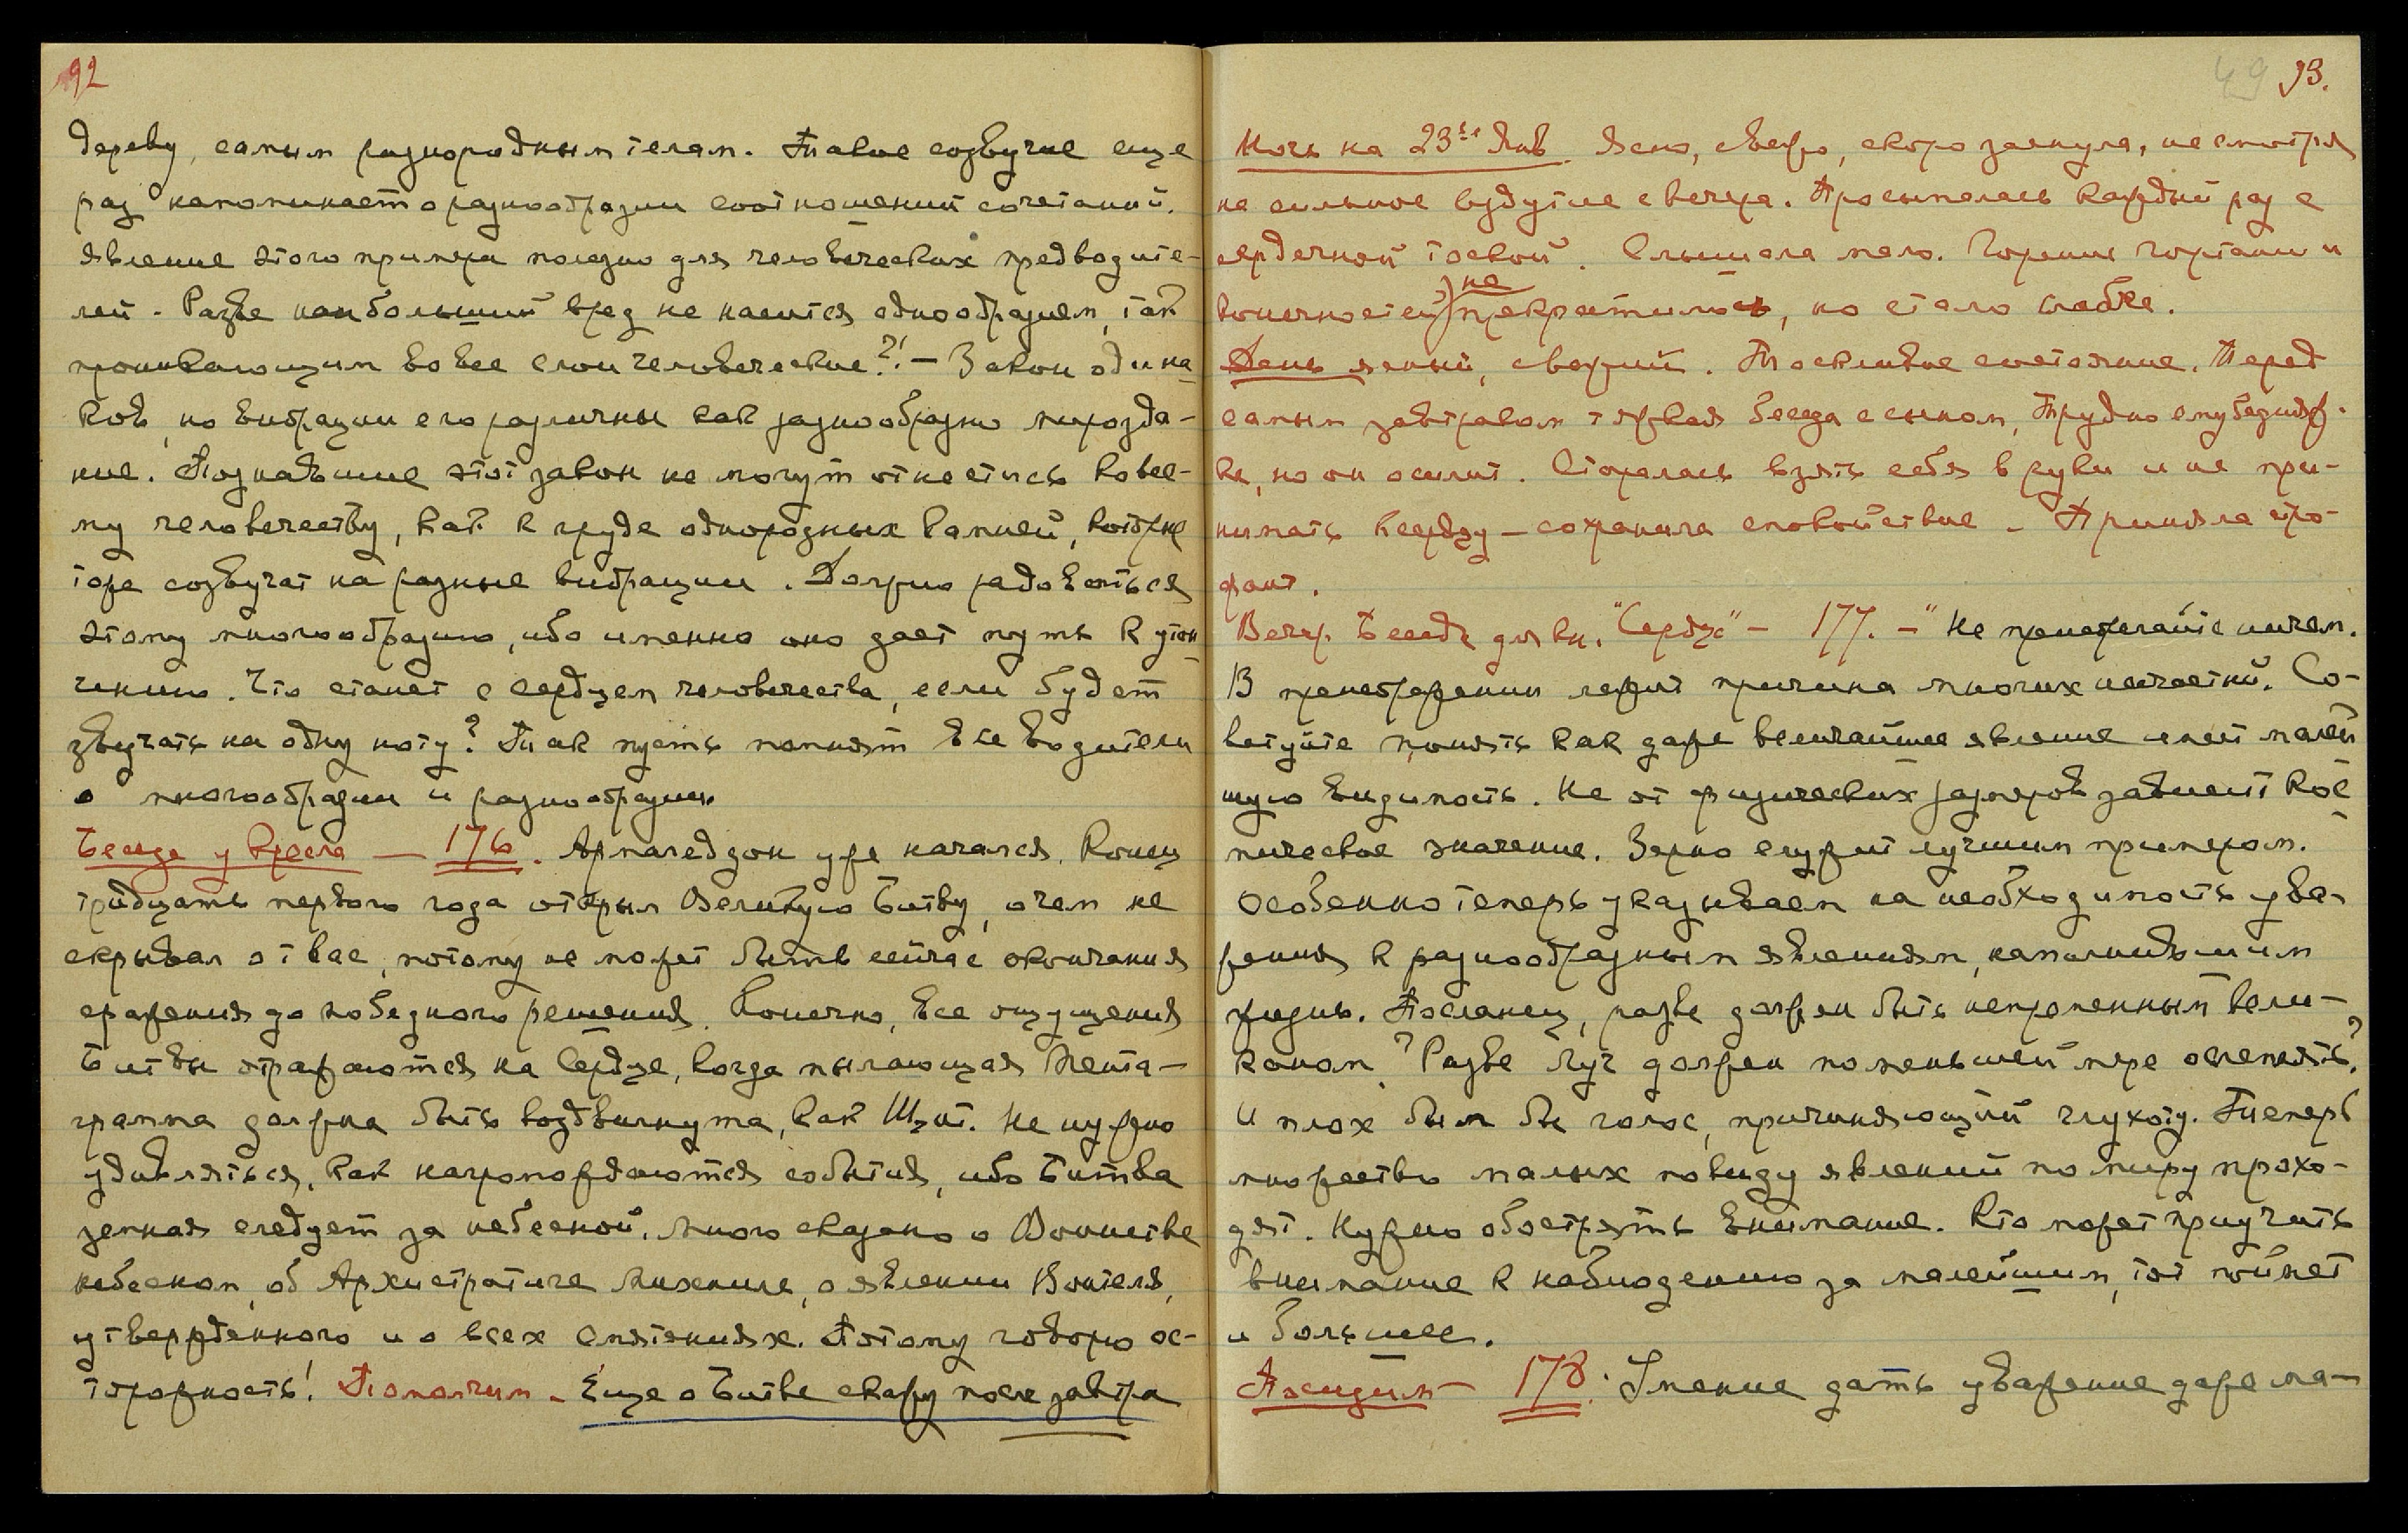 92
дереву, самым разнородным телам. Такое созвучие еще
раз напоминает о разнообразии соотношений сочетаний.
явление этого примера полезно для человеческих предводите-
лей. Разве наибольший вред не наносится однообразием, так
проникающим во все слои человеческие?! — Закон одина-
ков, но вибрации его различны как разнообразно мирозда-
ние. Познавшие этот закон не могут отнестись ко все-
му человечеству, как к груде однородных камней, которые
тоже созвучат на разные вибрации. Должно радоваться
этому многообразию, ибо именно оно дает путь к утон-
чению. Что станет с сердцем человечества, если будет
звучать на одну ноту? Так пусть помнят все водители
о многообразии и разнообразии.
Беседа у Кресла — 176. Армагеддон уже начался. Конец
тридцать первого года открыл Великую Битву, о чем не
скрывал от вас, потому не может быть сейчас окончания
сражения до победного решения. Конечно, все ощущения
Битвы отражаются на Сердце, когда пылающая Пента-
грамма должна быть воздвигнута, как Щит. Не нужно
удивляться, как нагромождаются события, ибо Битва
земная следует за небесной. Много сказано о Воинстве
небесном, об Архистратиге Михаиле, о явлении Воителя,
утвержденного и о всех смятениях. Потому говорю ос-
торожность! Помолчим. Еще о Битве скажу после завтра
49 93.
Ночь на 23ье Янв. Ясно, свежо, скоро заснула, несмотря
на сильное вздутие с вечера. Просыпалась каждый раз с
сердечной тоской. Слышала мало. Горение гортани и
не
конечностей прекратилось, но стало слабее.
День ясный, свежий. Тоскливое состояние. Перед
самым завтраком тяжкая беседа с сыном, Трудно ему
но он осилит. Старалась взять себя в руки и не при-
нимать к сердцу — сохранила спокойствие. Приняла стро-
фант.
Вечер. Беседа для кн. "Сердце" — 177. — "Не пренебрегайте ничем.
В пренебрежении лежит причина многих несчастий. Со-
ветуйте понять как даже величайшее явление имеет малей-
шую видимость. Не от физических размеров зависит кос-
мическое значение. Зерно служит лучшим примером.
Особенно теперь указываем на необходимость ува-
жения к разнообразным явлениям, наполнившим
жизнь. Посланец, разве должен быть непременным вели-
каном? Разве Луч должен по меньшей мере ослеплять?
И плох был бы голос, причиняющий глухоту. Теперь
множество малых по виду явлений по миру прохо-
дят. Нужно обострять внимание. Кто может приучить
внимание к наблюдению за малейшим, тот поймет
и большее.
Посидим — 178. Умение дать уважение даже ма-